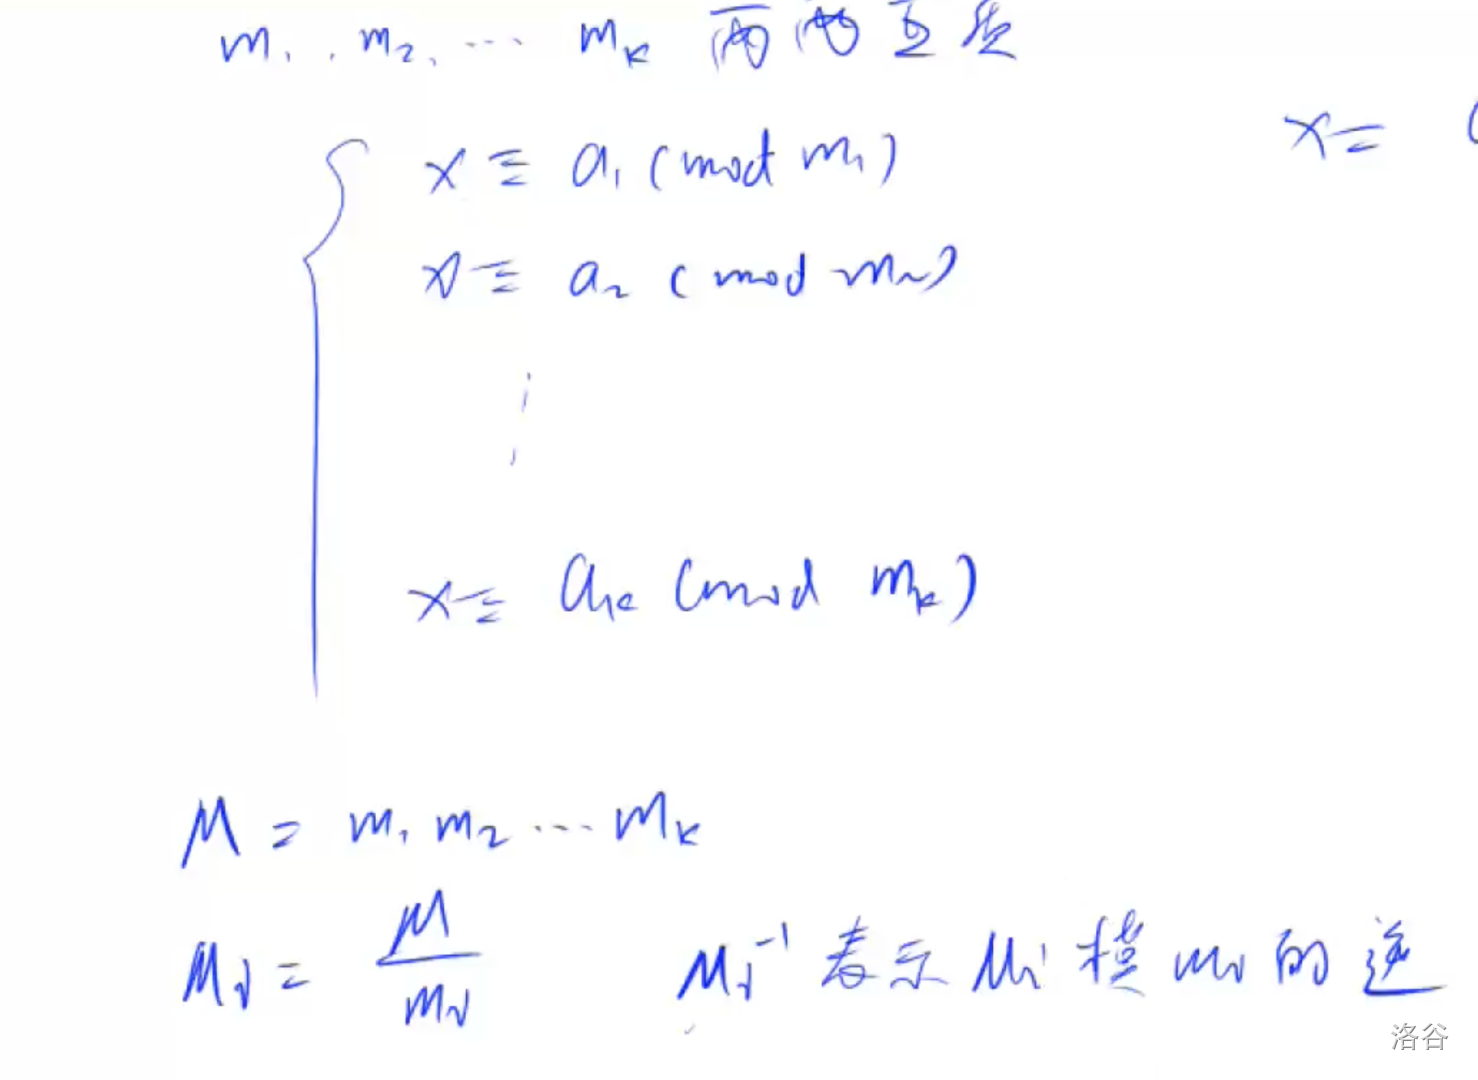 m₁, m₂, … mₖ 两两互质
x ≡ a₁ (mod m₁)
x =
x ≡ a₂ (mod m₂)
⋮
x ≡ aₖ (mod mₖ)
M = m₁ m₂ … mₖ
Mᵢ = M / mᵢ Mᵢ⁻¹ 表示 Mᵢ 模 mᵢ 的逆
洛谷